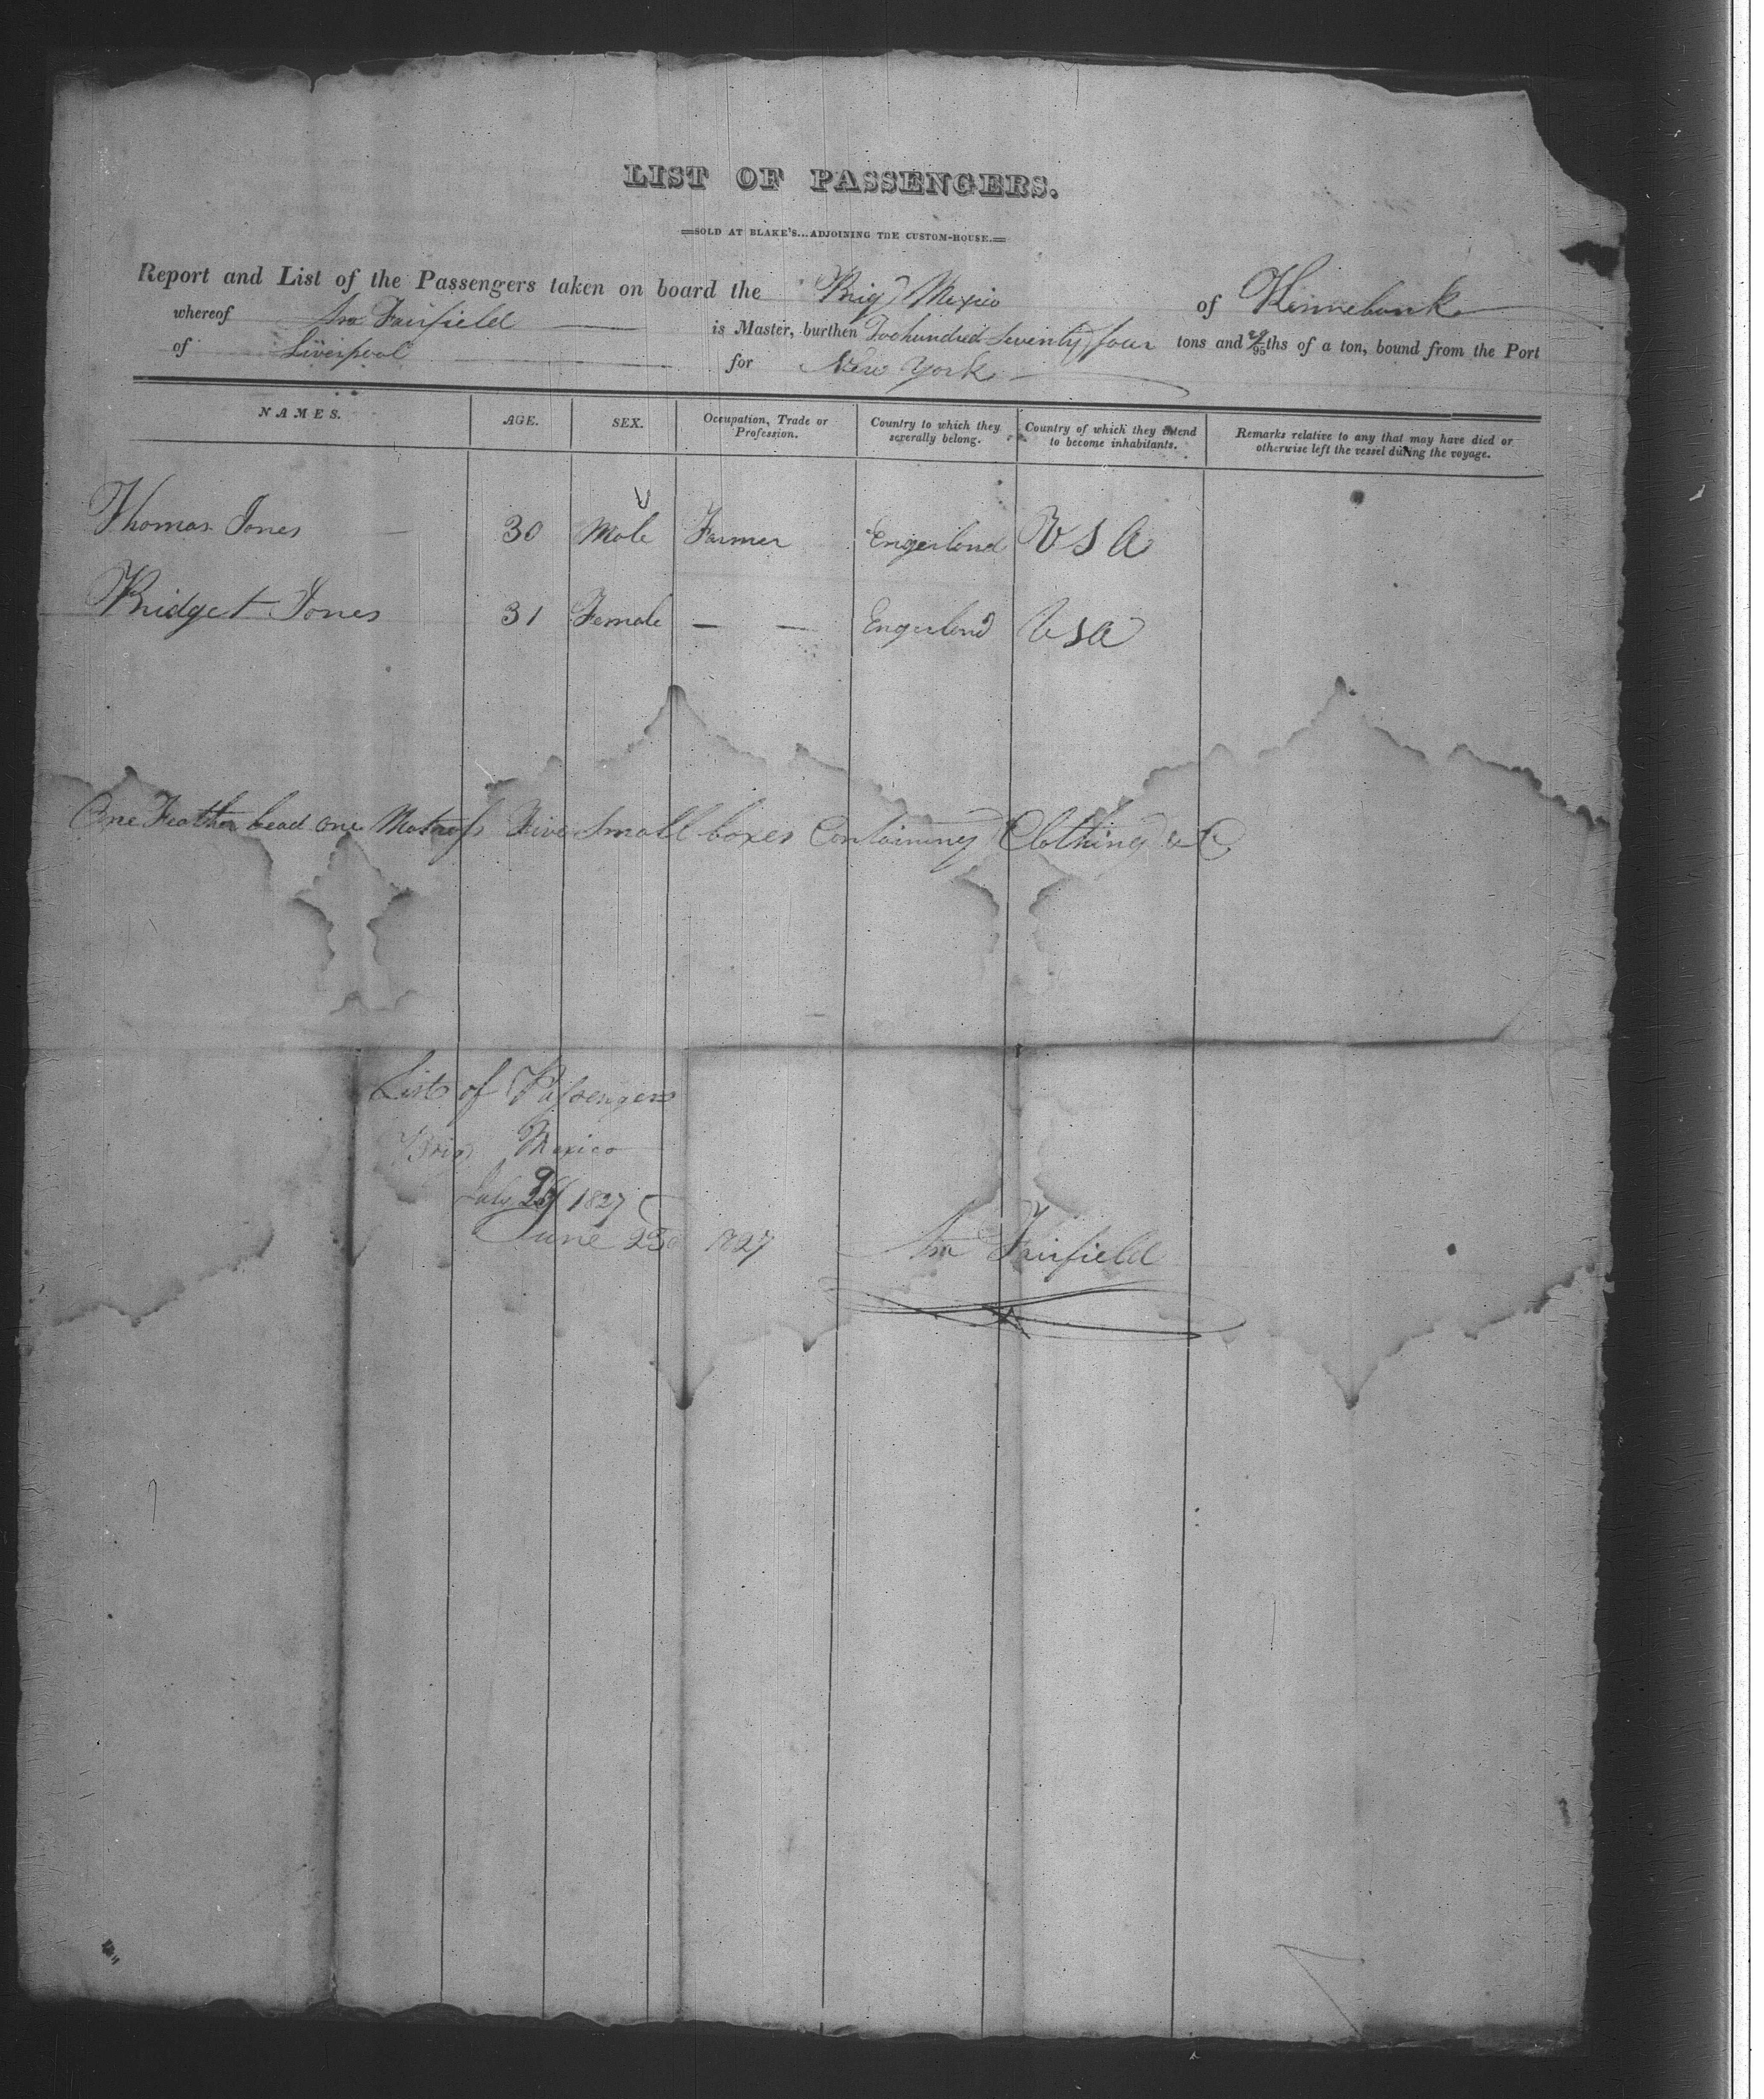 LIST OF PASSENGERS.
SOLD AT BLAKE'S...ADJOINING THE CUSTOM-HOUSE.
Report and List of the Passengers taken on board the Brig Mexico of Kinnebunk
whereof Ira Fairfield is Master, burthen Two hundred Seventy four tons and /95ths of a ton, bound from the Port
of Liverpool for New York
NAMES. AGE. SEX. Occupation, Trade or Profession. Country to which they severally belong. Country of which they intend to become inhabitants. Remarks relative to any that may have died or otherwise left the vessel during the voyage.
Thomas Jones 30 Male Farmer Engerland U S A
Bridget Jones 31 Female — — Engerland U S A
One Feather bead one Matrass Five Small boxes Containing Clothing &C
List of Passengers
Brig Mexico
July 1827
June 23 1827 Ira Fairfield